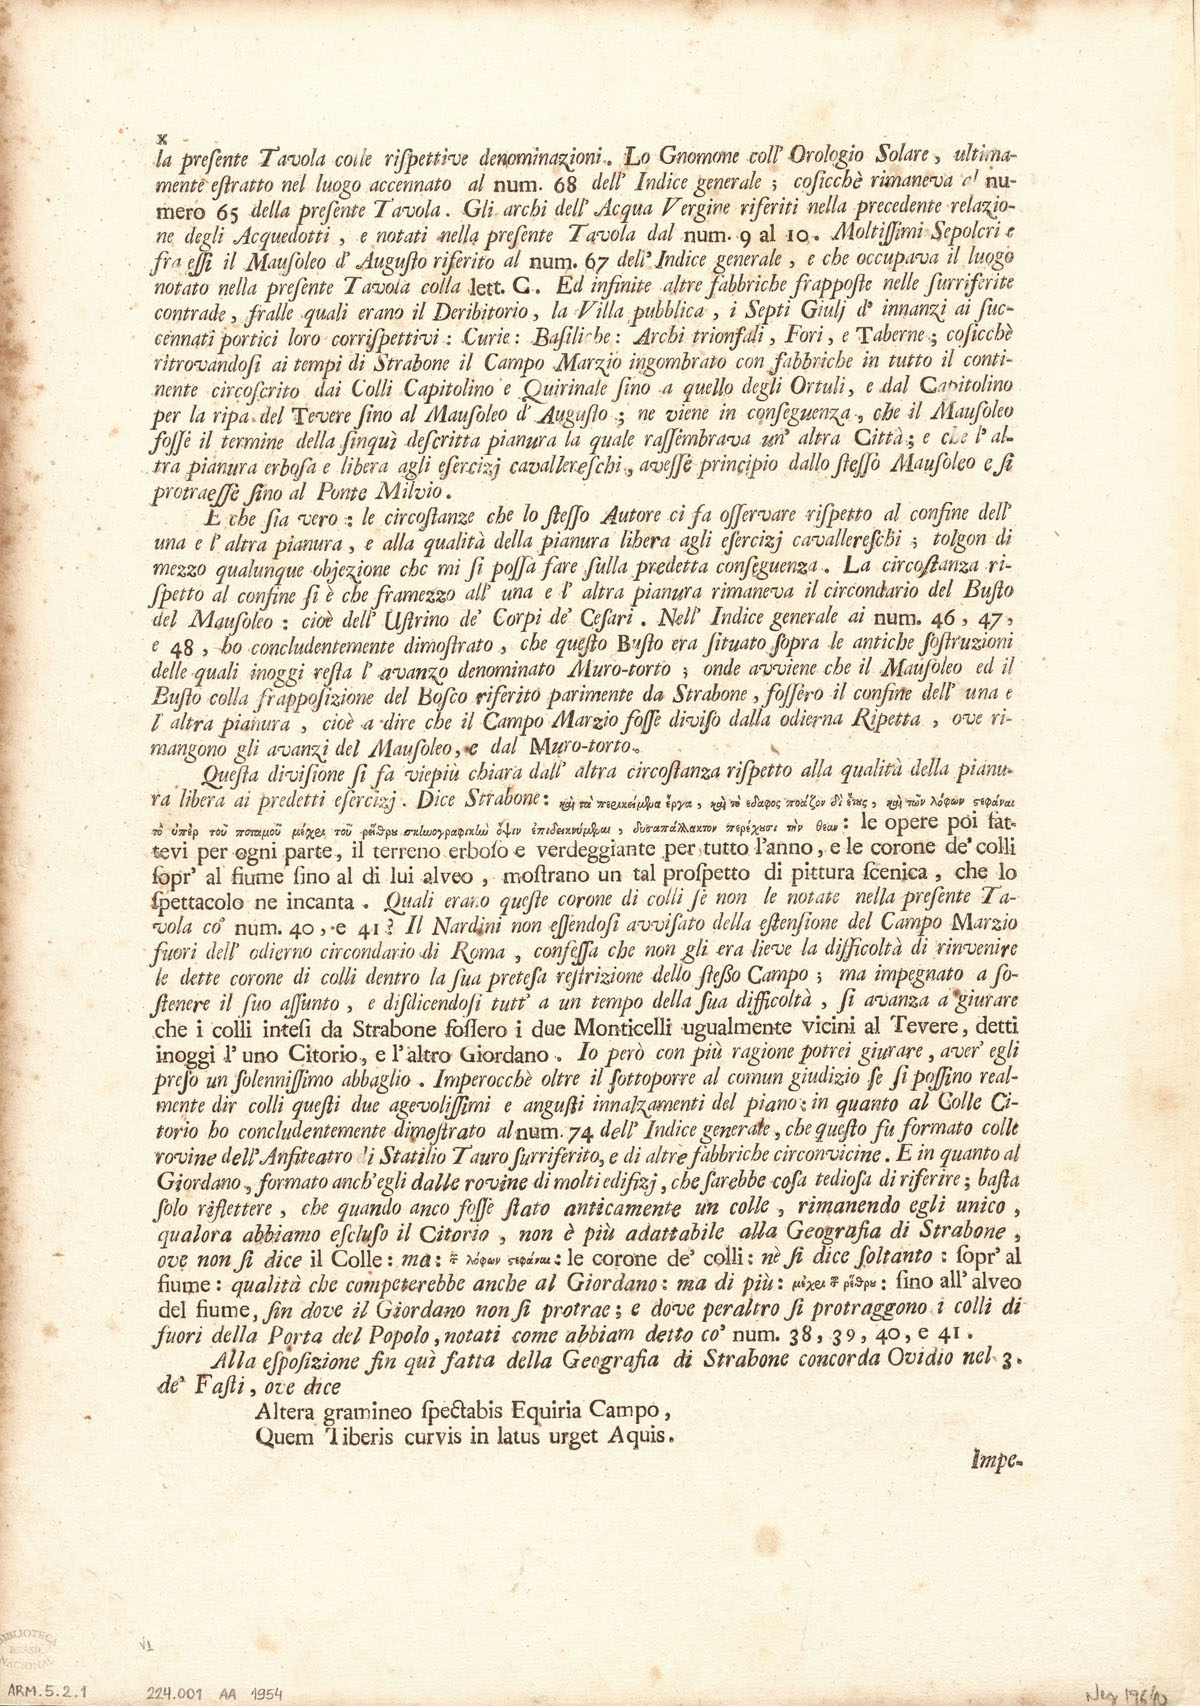 x
la preſente Tavola colle riſpettive denominazioni. Lo Gnomone coll' Orologio Solare, ultima-
mente eſtratto nel luogo accennato al num. 68 dell' Indice generale; coſicchè rimaneva al nu-
mero 65 della preſente Tavola. Gli archi dell' Acqua Vergine riferiti nella precedente relazio-
ne degli Acquedotti, e notati nella preſente Tavola dal num. 9 al 10. Moltiſſimi Sepolcri e
fra eſſi il Mauſoleo d' Auguſto riferito al num. 67 dell' Indice generale, e che occupava il luogo
notato nella preſente Tavola colla lett. C. Ed infinite altre fabbriche frappoſte nelle ſurriferite
contrade, fralle quali erano il Deribitorio, la Villa pubblica, i Septi Giulj d' innanzi ai ſuc-
cennati portici loro corriſpettivi: Curie: Baſiliche: Archi trionfali, Fori, e Taberne; coſicchè
ritrovandoſi ai tempi di Strabone il Campo Marzio ingombrato con fabbriche in tutto il conti-
nente circoſcrito dai Colli Capitolino e Quirinale ſino a quello degli Ortuli, e dal Capitolino
per la ripa del Tevere ſino al Mauſoleo d' Auguſto; ne viene in conſeguenza, che il Mauſoleo
foſſe il termine della ſinquì deſcritta pianura la quale raſſembrava un' altra Città; e che l' al-
tra pianura erboſa e libera agli eſercizj cavallereſchi, aveſſe principio dallo ſteſſo Mauſoleo e ſi
protraeſſe ſino al Ponte Milvio.
E che ſia vero: le circoſtanze che lo ſteſſo Autore ci fa oſſervare riſpetto al confine dell'
una e l' altra pianura, e alla qualità della pianura libera agli eſercizj cavallereſchi; tolgon di
mezzo qualunque objezione che mi ſi poſſa fare ſulla predetta conſeguenza. La circoſtanza ri-
ſpetto al confine ſi è che framezzo all' una e l' altra pianura rimaneva il circondario del Buſto
del Mauſoleo: cioè dell' Uſtrino de' Corpi de' Ceſari. Nell' Indice generale ai num. 46, 47,
e 48, ho concludentemente dimoſtrato, che queſto Buſto era ſituato ſopra le antiche ſoſtruzioni
delle quali inoggi reſta l' avanzo denominato Muro-torto; onde avviene che il Mauſoleo ed il
Buſto colla frappoſizione del Boſco riferito parimente da Strabone, foſſero il confine dell' una e
l' altra pianura, cioè a dire che il Campo Marzio foſſe diviſo dalla odierna Ripetta, ove ri-
mangono gli avanzi del Mauſoleo, e dal Muro-torto.
Queſta diviſione ſi fa viepiù chiara dall' altra circoſtanza riſpetto alla qualità della pianu-
ra libera ai predetti eſercizj. Dice Strabone: καὶ τὰ περικείμενα ἔργα, καὶ τὸ εδαφος ποάζον δἰ ἔτους, καὶ τῶν λόφων στεφάναι
τὸ ὑπὲρ τοῦ ποταμοῦ μέχρι τοῦ ῥείθρου σκηνογραφικὴν ὄψιν ἐπιδεικνύμεναι, δυσαπάλλακτον περέχουσι τὴν θεαν: le opere poi fat-
tevi per ogni parte, il terreno erboſo e verdeggiante per tutto l'anno, e le corone de' colli
ſopr' al fiume ſino al di lui alveo, moſtrano un tal proſpetto di pittura ſcenica, che lo
ſpettacolo ne incanta. Quali erano queſte corone di colli ſe non le notate nella preſente Ta-
vola co' num. 40, e 41? Il Nardini non eſſendoſi avviſato della eſtenſione del Campo Marzio
fuori dell' odierno circondario di Roma, confeſſa che non gli era lieve la difficoltà di rinvenire
le dette corone di colli dentro la ſua preteſa reſtrizione dello ſteſſo Campo; ma impegnato a ſo-
ſtenere il ſuo aſſunto, e diſdicendoſi tutt' a un tempo della ſua difficoltà, ſi avanza a giurare
che i colli inteſi da Strabone foſſero i due Monticelli ugualmente vicini al Tevere, detti
inoggi l' uno Citorio, e l'altro Giordano. Io però con più ragione potrei giurare, aver' egli
preſo un ſolenniſſimo abbaglio. Imperocchè oltre il ſottoporre al comun giudizio ſe ſi poſſino real-
mente dir colli queſti due agevoliſſimi e anguſti innalzamenti del piano: in quanto al Colle Ci-
torio ho concludentemente dimoſtrato al num. 74 dell' Indice generale, che queſto fu formato colle
rovine dell'Anfiteatro di Statilio Tauro ſurriferito, e di altre fabbriche circonvicine. E in quanto al
Giordano, formato anch'egli dalle rovine di molti edifizj, che ſarebbe coſa tedioſa di riferire; baſta
ſolo riflettere, che quando anco foſſe ſtato anticamente un colle, rimanendo egli unico,
qualora abbiamo eſcluſo il Citorio, non è più adattabile alla Geografia di Strabone,
ove non ſi dice il Colle: ma: τῶν λόφων στεφάναι: le corone de' colli: nè ſi dice ſoltanto: ſopr' al
fiume: qualità che competerebbe anche al Giordano: ma di più: μέχρι τοῦ ῥείθρου: ſino all' alveo
del fiume, ſin dove il Giordano non ſi protrae; e dove peraltro ſi protraggono i colli di
fuori della Porta del Popolo, notati come abbiam detto co' num. 38, 39, 40, e 41.
Alla eſpoſizione fin quì fatta della Geografia di Strabone concorda Ovidio nel 3.
de' Faſti, ove dice
Altera gramineo ſpectabis Equiria Campo,
Quem Tiberis curvis in latus urget Aquis.
Impe-
BIBLIOTECA
BRASIL
NACIONAL
V1
ARM.5.2.1 224.001 AA 1954